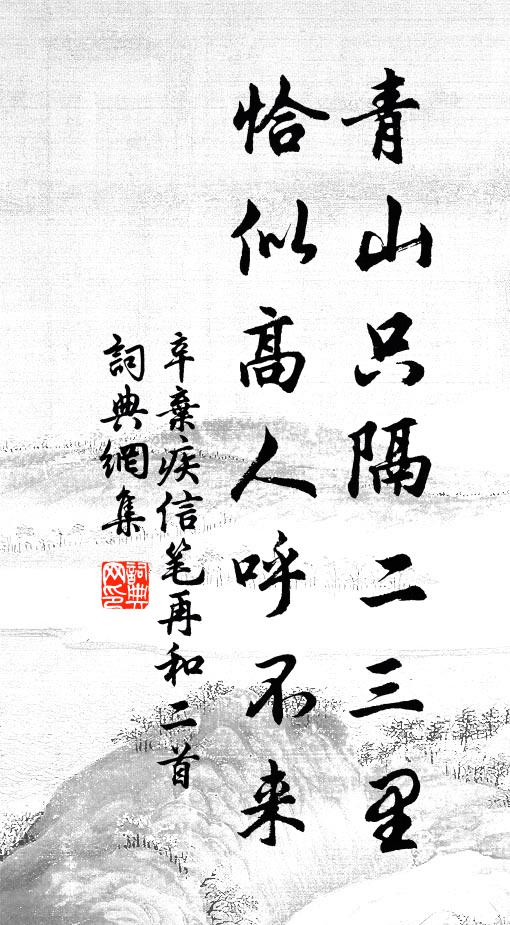 青山只隔二三里
恰似高人呼不来
辛棄疾信笔再和二首
詞典網集
詞典网印